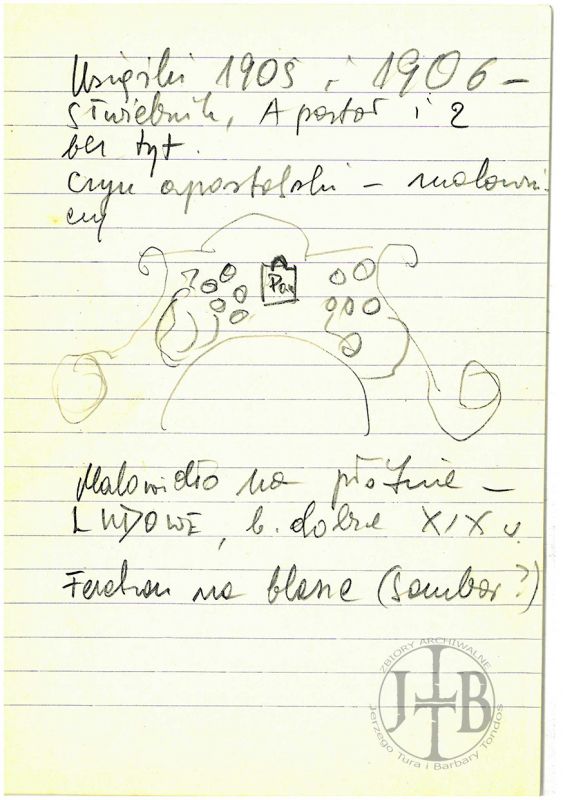 Książki 1905 i 1906 –
Służebnik, Apostoł i 2
bez tyt.
Czyn apostolski – malowni-
czy
Pan
Malowidło na płótnie –
LUDOWE, b. dobre XIX w.
Feretron na blasze (Sambor?)
ZBIORY ARCHIWALNE
JTB
Jerzego Tura i Barbary Tondos